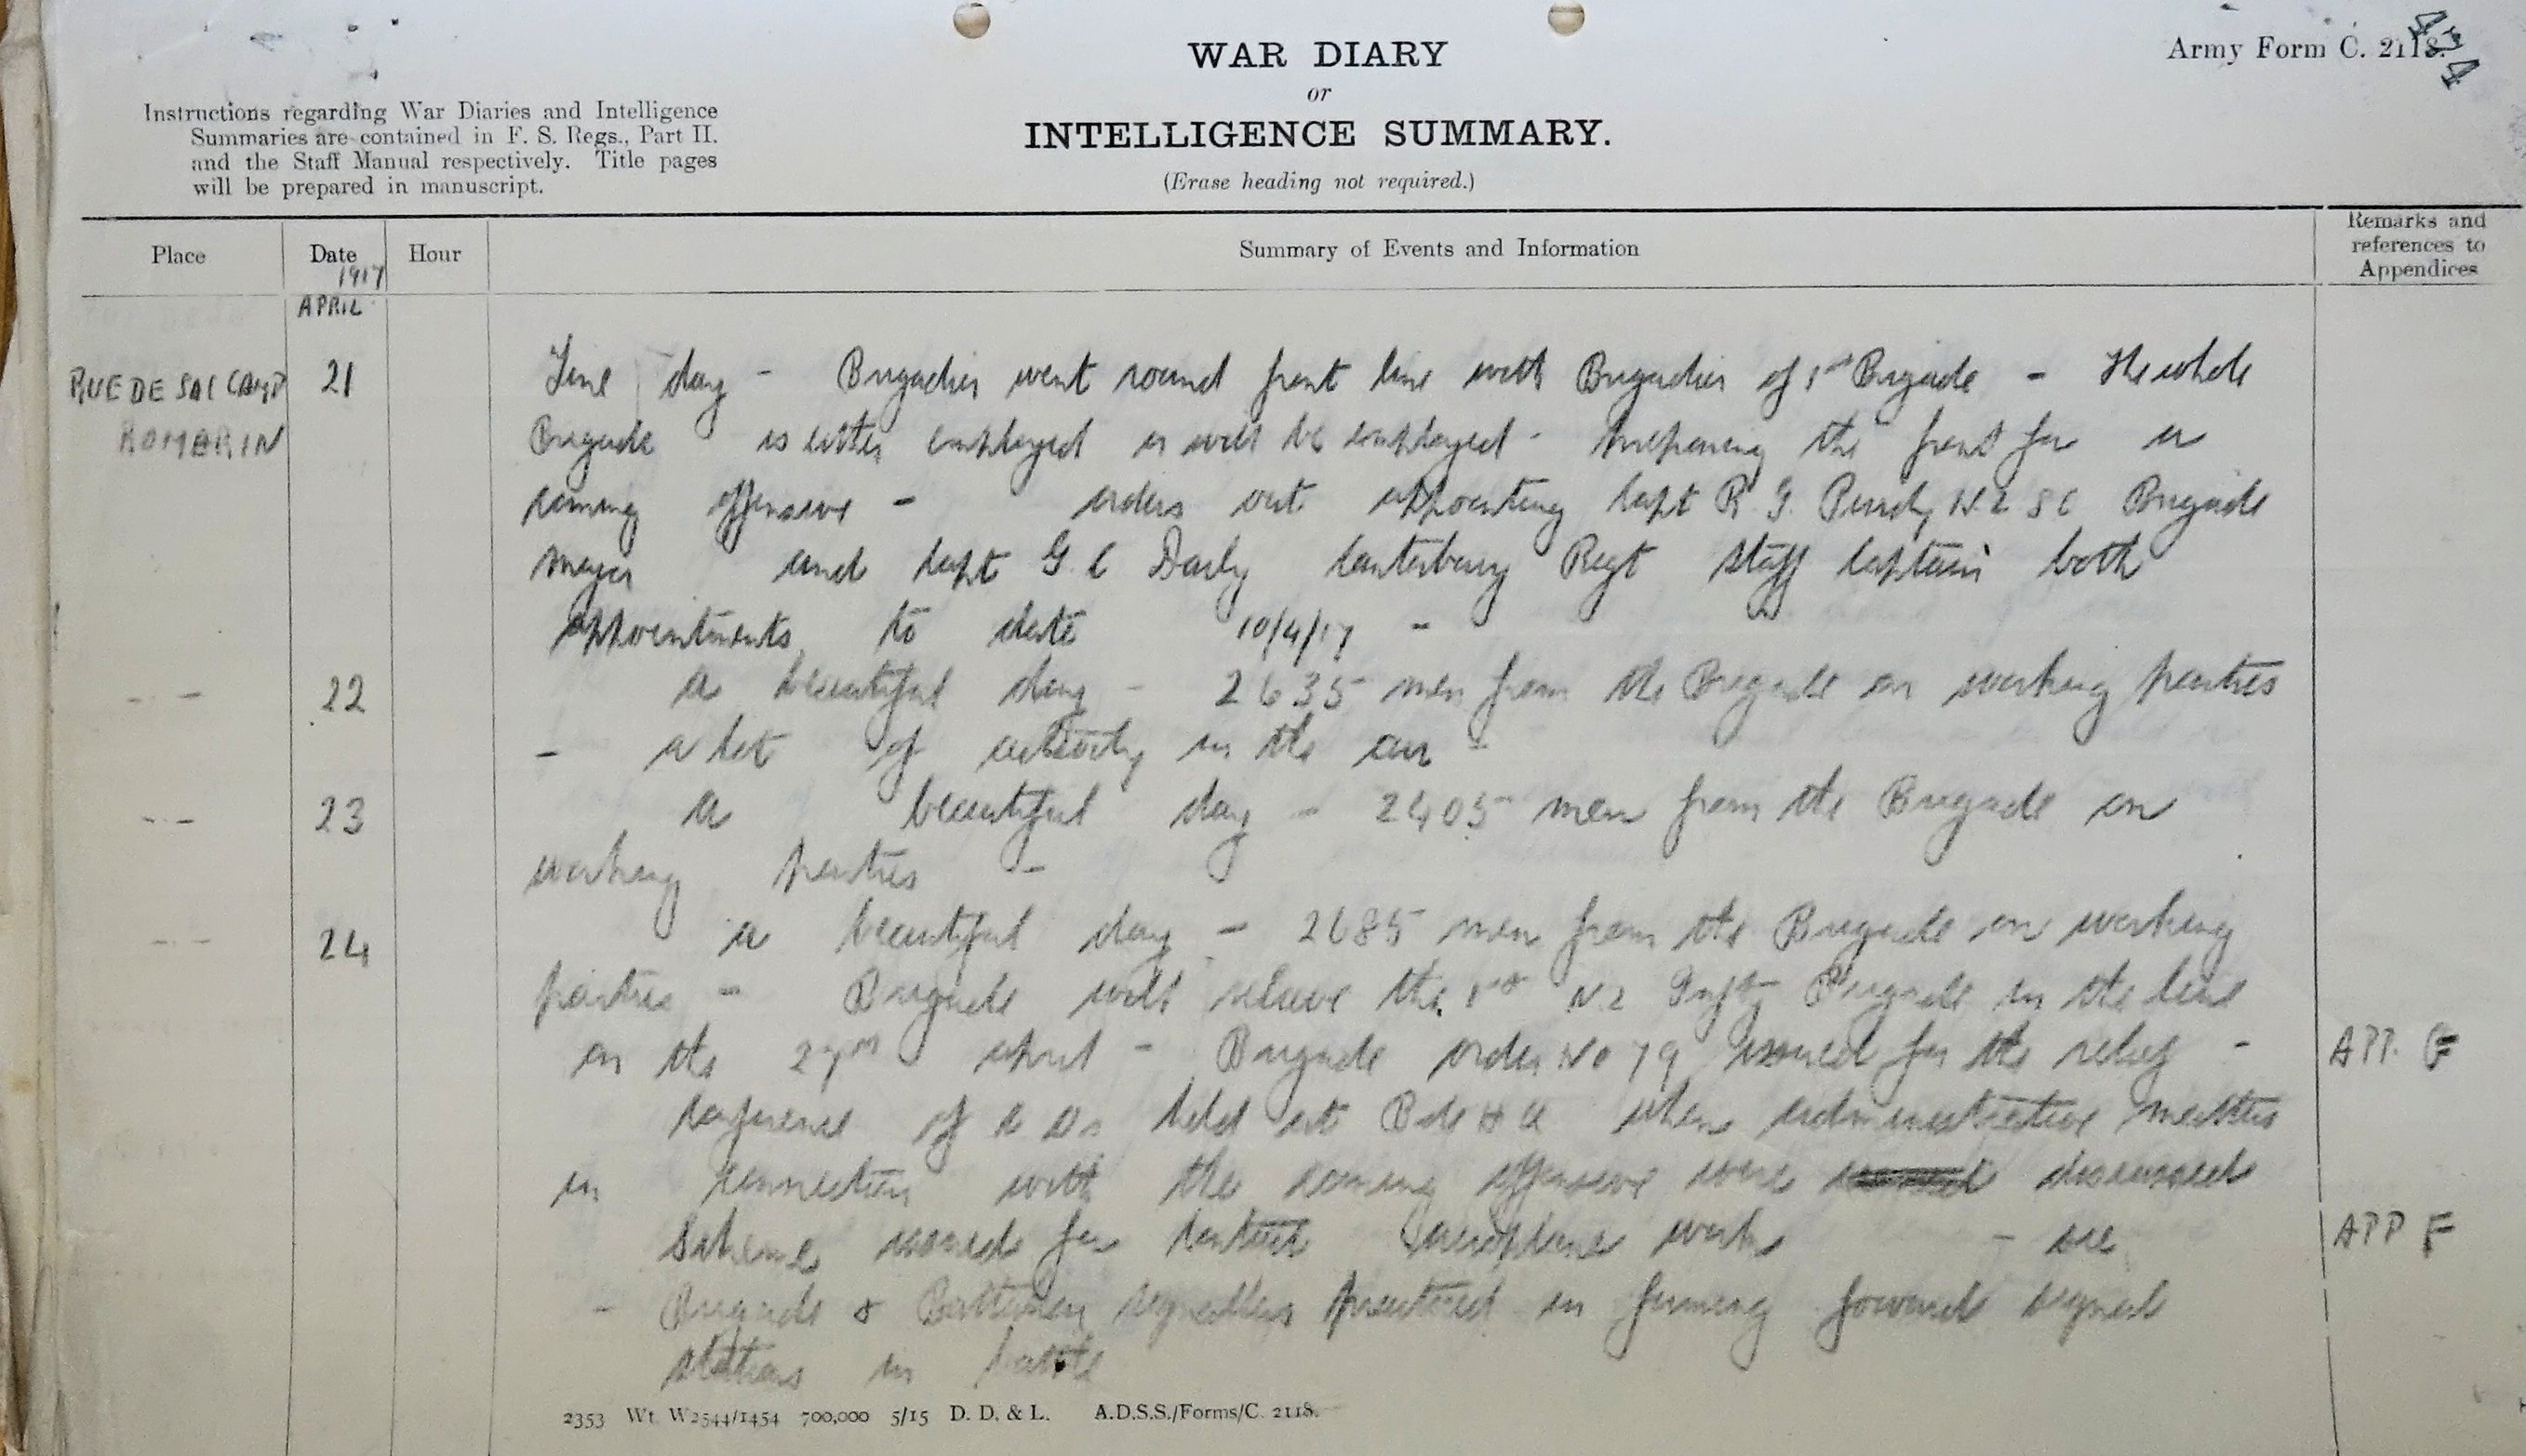 WAR DIARY
or
INTELLIGENCE SUMMARY.
(Erase heading not required.)
Army Form C. 2118.
Instructions regarding War Diaries and Intelligence
Summaries are contained in F. S. Regs., Part II.
and the Staff Manual respectively. Title pages
will be prepared in manuscript.
Place Date Hour Summary of Events and Information Remarks and references to Appendices
1917
APRIL
RUE DE SAC CAMP 21 Fine day - Brigadier went round front line with Brigadier of 1st Brigade - The whole
ROMARIN Brigade is either employed or will be employed - preparing the front for a
coming offensive - orders out appointing Capt R. G. Purdy N.Z S C Brigade
Major and Capt G C Daily Canterbury Regt Staff Captain both
appointments to date 10/4/17 -
- - 22 A beautiful day - 2635 men from the Brigade on working parties
- a lot of activity in the air -
- - 23 A beautiful day - 2405 men from the Brigade on
working parties -
- - 24 A beautiful day - 2685 men from the Brigade on working
parties - Brigade will relieve the 1st N.Z Infty Brigade in the line
on the 27th April - Brigade order No 79 issued for the relief - APP.
Conference of C Os held at Bde H Q when administrative matters
in connection with the coming offensive were discussed
Scheme issued for contact aeroplane work - see APP F
- Brigade & Battalion signallers practiced in forming forward signal
stations in battle
2353 Wt. W2544/1454 700,000 5/15 D. D. & L. A.D.S.S./Forms/C. 2118.